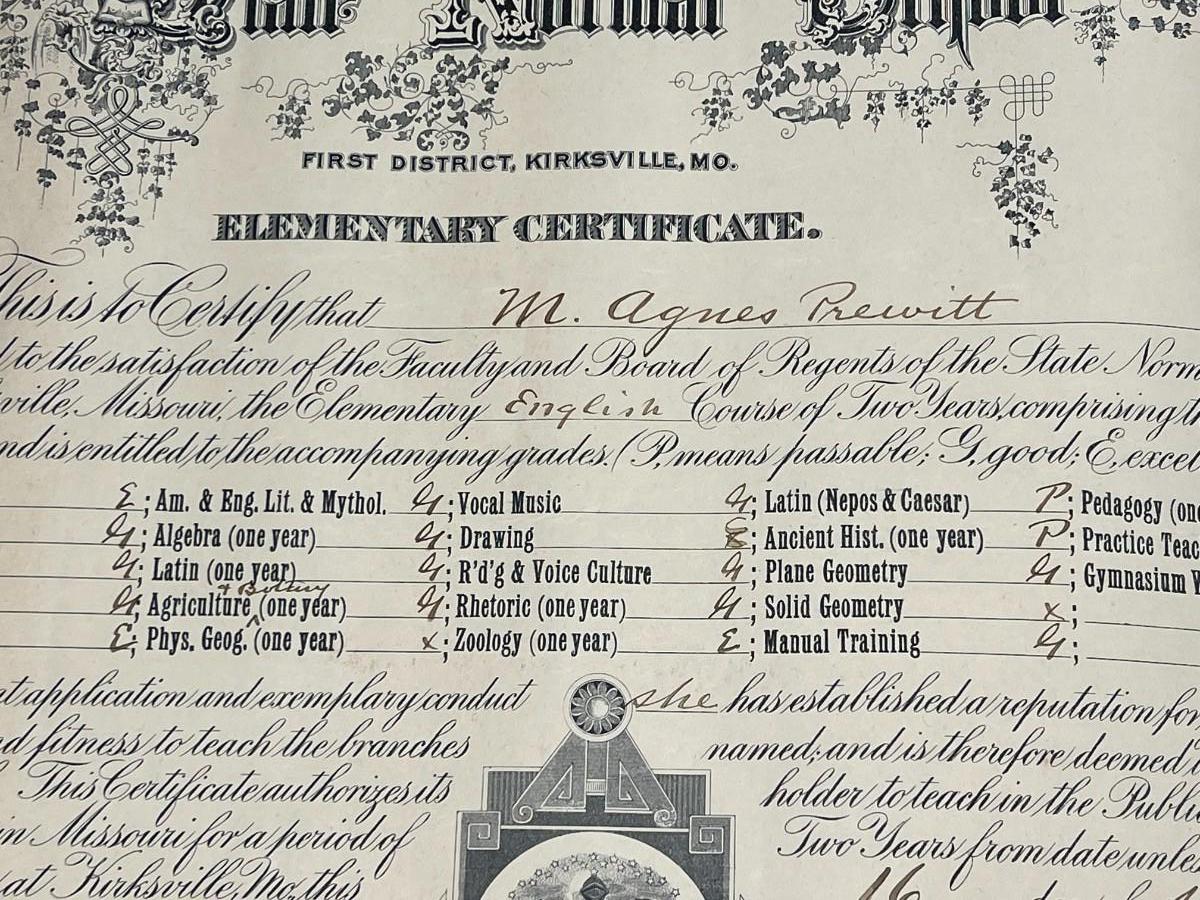 State Normal School
FIRST DISTRICT, KIRKSVILLE, MO.
ELEMENTARY CERTIFICATE.
This is to Certify that M. Agnes Prewitt
d to the satisfaction of the Faculty and Board of Regents of the State Norm
sville, Missouri, the Elementary English Course of Two Years, comprising th
nd is entitled to the accompanying grades. (P, means passable; G, good; E, excel
E; Am. & Eng. Lit. & Mythol. G; Vocal Music G; Latin (Nepos & Caesar) P; Pedagogy (one
G; Algebra (one year) G; Drawing E; Ancient Hist. (one year) P; Practice Teac
G; Latin (one year) G; R'd'g & Voice Culture G; Plane Geometry G; Gymnasium W
+ Botany
G; Agriculture ^ (one year) G; Rhetoric (one year) G; Solid Geometry x;
E; Phys. Geog. (one year) x; Zoology (one year) E; Manual Training G;
nt application and exemplary conduct she has established a reputation for
nd fitness to teach the branches named; and is therefore deemed
This Certificate authorizes its holder to teach in the Public
in Missouri for a period of Two Years from date unless
at Kirksville, Mo., this 16